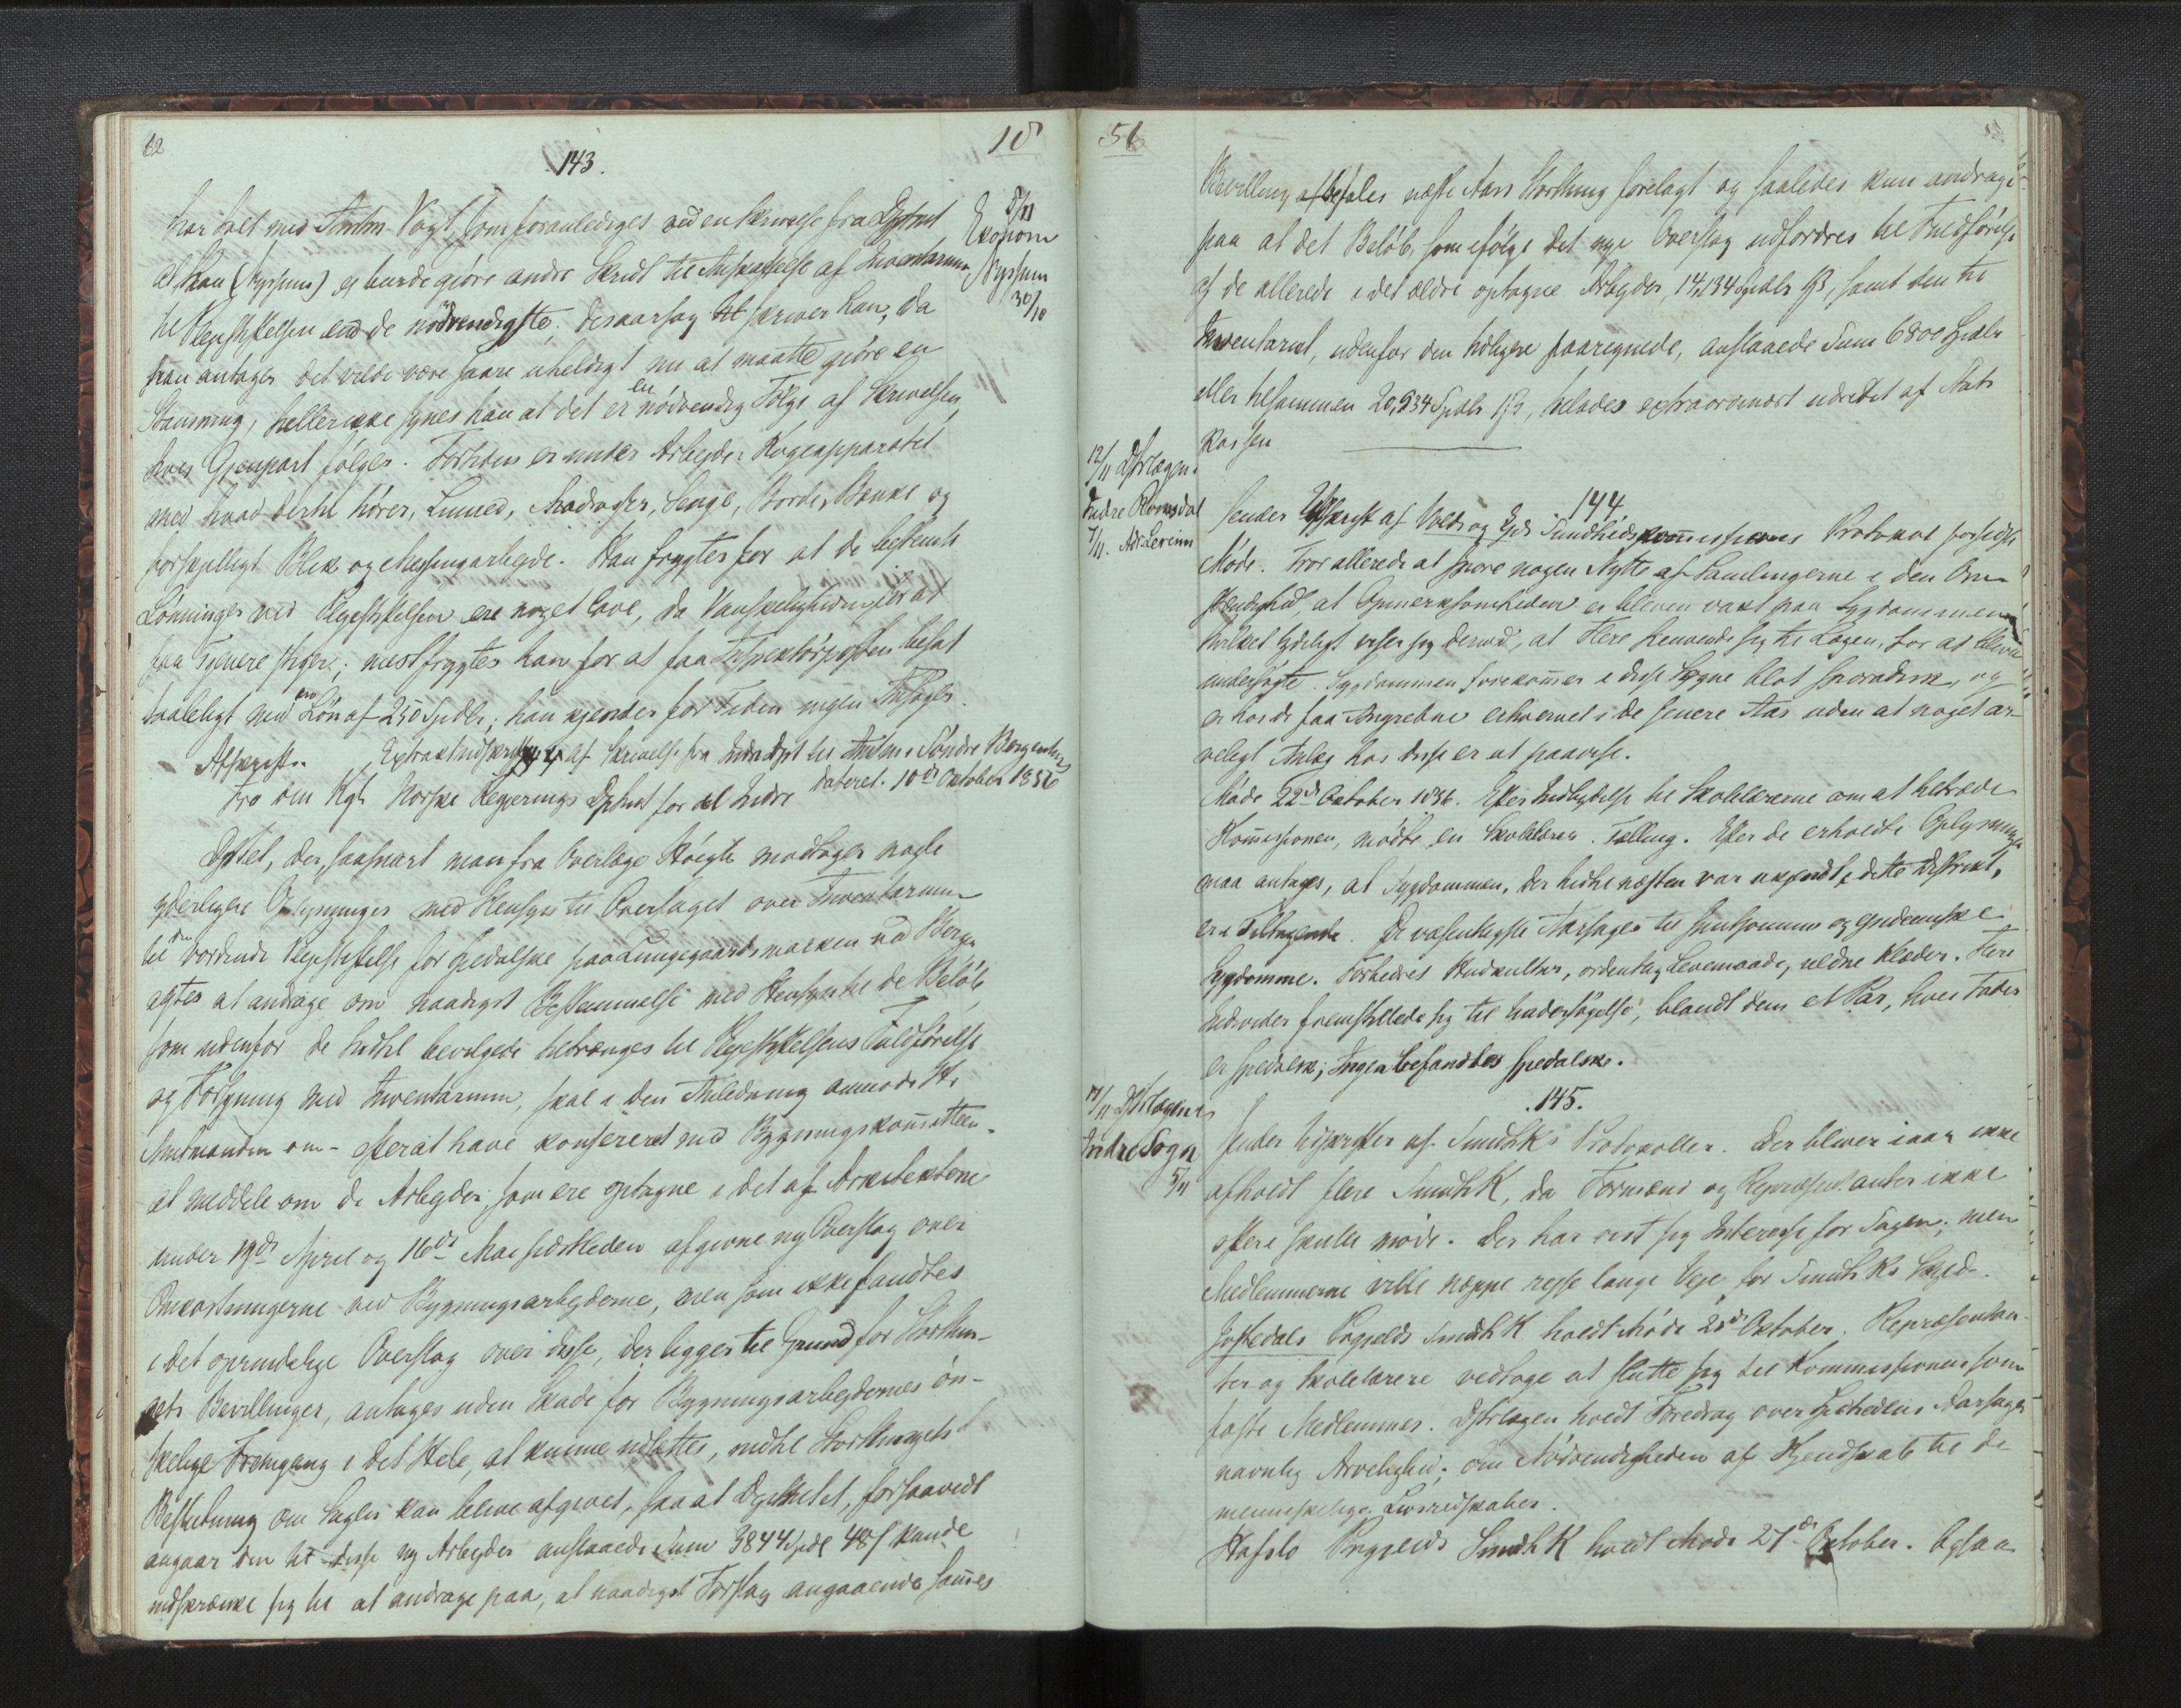 62
18
143.
har talt med Amtm Vogt, som foranlediges ved en Skrivelse fra Dptmt
at han (Nyssum) ej burde gjöre andre Skridt til Anskaffelse af Inventarium
til Plejestiftelsen end de nödvendigste; desaarsag skriver han, da
han antager det vilde være saare uheldigt nu at maatte gjöre en
Standsning, heller ikke synes han at det er en nödvendig Fölge af Skrivelsen
hvis Gjenpart fölger. Forhen er under Arbejde: Kogeapparatet
med hvad dertil hörer, Linned, Madrasser, Senge, Borde, Bænke og
forskjelligt Blik og Messingarbejde. Han frygter for at de bestemte
Lönninger ved Plejestiftelsen ere noget lave, da Vanskeligheden for at
faa Tjenere stiger; mest frygter han for at faa Inspektörposten besat
taaleligt med en Lön af 250 Spdlr; han kjender for Tiden ingen Ansöger.
5/11
Ekonom
Nyssum
30/10
Afskrift. Extraktudskrift af Skrivelse fra Indredept til Amtm i Söndre Bergenhus
dateret. 10de Oktober 1856
Fra den Kgl Norske Regjerings Dptmt for det Indre
Dptet, der, saasnart man fra Overlæge Höegh modtager nogle
yderligere Oplysninger med Hensyn til Overslaget over Inventarium
til den vordende Plejestiftelse for Spedalske paa Lungegaardsmarken ved Bergen
agter at andrage om naadigst Bestemmelse med Hensyn til de Belöb,
som udenfor de hidtil bevilgede tiltrænges til Plejestiftelsens Fuldförelse
og Forsyning med Inventarium, skal i den Anledning anmode Hr
Amtmanden om - efter at have konfereret med Bygningskomitteen -
at meddele om de Arbejder, som ere optagne i det af Arkitekterne
under 19de April og 16de Mai sidstleden afgivne ny Overslag over
Omkostningerne ved Bygningsarbejderne, men som ikke fandtes
i det oprindelige Overslag over disse, der ligger til Grund for Storthin-
gets Bevillinger, antages uden Skade for Bygningsarbejdernes ön-
skelige Fremgang i det Hele, at kunne udsættes, indtil Storthingets
Beslutning om Sagen kan blive afgivet, saa at Dptmtet, forsaavidt
angaar den til disse ny Arbejder anslaaede Sum 3844 Spdl 48 s kunde
indskrænke sig til at andrage paa, at naadigst Forslag angaaende sammes
56
Bevilling af befales næste Aars Storthing forelagt og saaledes kun andrage
paa at det Belöb, som ifölge det nye Overslag udfordres til Fuldförelse
af de allerede i det ældre optagne Arbejder, 14,134 Spdlr ß, samt den til
Inventariet, udenfor den tidligere paaregnede, anslaaede Sum 6800 Spdlr
eller tilsammen 20,934 Spdlr ß, tillades extraordinært udredet af Stats
kassen
144
12/11 Dstrlægen i
Indre Romsdal
7/11. Adr. Levinn
Sender Udskrift af Volds og Eids Sundhedskommissions Protokol for sidste
Möde. Tror allerede at spore nogen Nytte af Samlingerne i den Om-
stændighed, at Opmerksomheden er bleven vakt paa Sygdommen
hvilket tydeligt viser sig derved, at Flere henvende sig til Lægen, for at blive
undersögte. Sygdommen forekommer i disse Sogne blot sporadisk, og
er hos de faa Angrebne erhvervet i de senere Aar uden at noget ar-
veligt Anlæg hos disse er at paavise.
Möde 22de Oktober 1856. Efter Indbydelse til Skolelærerne om at tiltræde
Kommissionen, mödte en Skolelærer. Tælling. Efter de erholdte Oplysninger
maa antages, at Sygdommen, der hidtil næsten var ukjendt i dette Distrikt,
er i Tiltagende. De væsentligste Aarsager til Spedalskhed og epidemiske
Sygdomme. Forbedret Hudkultur, ordentlig Levemaade, uldne Klæder. Flere
Individer fremstillede sig til Undersögelse, blandt dem et Par, hvis Fader
er spedalsk; Ingen befandtes spedalske.
145.
14/11 Dstrlægen i
Indre Sogn
5/11
Sender Udskrifter af SundhKs Protokoller. Der bliver iaar ikke
afholdt flere SundhK, da Formænd og Repræsentanter ikke
oftere skulle möde. Der har vist sig Interesse for Sagen; men
Medlemmerne ville neppe rejse lange Veje for SundhKs Skyld.
Jostedals Prgjelds SundhK holdt Möde 25de Oktober. Repræsentan-
ter og Skolelærere vedtoge at slutte sig til Kommissionen som
faste Medlemmer. Dstrlægen holdt Foredrag over Spedskhedens Aarsager
navnlig Arvelighed; om Nödvendigheden af Kjendskab til de
menneskelige Livsredskaber.
Hafslo Prgjelds SundhK holdt Möde 27de Oktober. Ogsaa